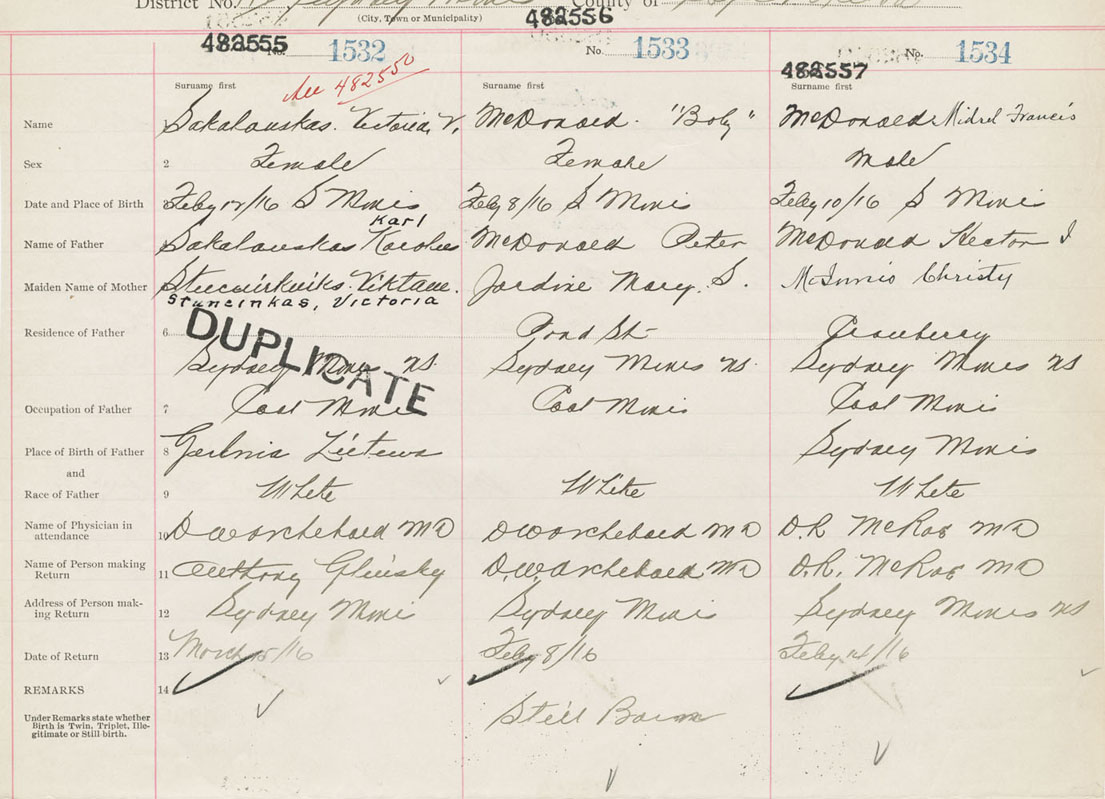 District No. Sydney Mines County of
(City, Town or Municipality)
482555 482556 482557
No. 1532 No. 1533 No. 1534
See 482550
Surname first Surname first Surname first
Name 1 Sakalauskas. Victoria, V. McDonald. "Boby" McDonald Midrel Francis
Sex 2 Female Female Male
Date and Place of Birth 3 Feby 17/16 S Mines Feby 8/16 S Mines Feby 10/16 S Mines
Karl
Name of Father Sakalauskas Karolus McDonald Peter McDonald Hector J
Maiden Name of Mother Viktaue. Jardine Mary S. McInnis Christy
Stuncinkas, Victoria
Residence of Father 6 Pond St Cranberry
Sydney Mines NS. Sydney Mines NS. Sydney Mines NS
DUPLICATE
Occupation of Father 7 Coal Mines Coal Mines Coal Mines
Place of Birth of Father 8 Gerlnia Lietewa Sydney Mines
and
Race of Father 9 White White White
Name of Physician in
attendance 10 D W Archebald MD D W Archebald MD D.R McRae MD
Name of Person making
Return 11 Anthony Glinsky D.W. Archebald MD D.R. McRae MD
Address of Person mak-
ing Return 12 Sydney Mines Sydney Mines Sydney Mines NS
Date of Return 13 March 15/16 Feby 8/16 Feby 14/16
REMARKS 14
Under Remarks state whether
Birth is Twin, Triplet, Ille-
gitimate or Still-birth.
Still Born